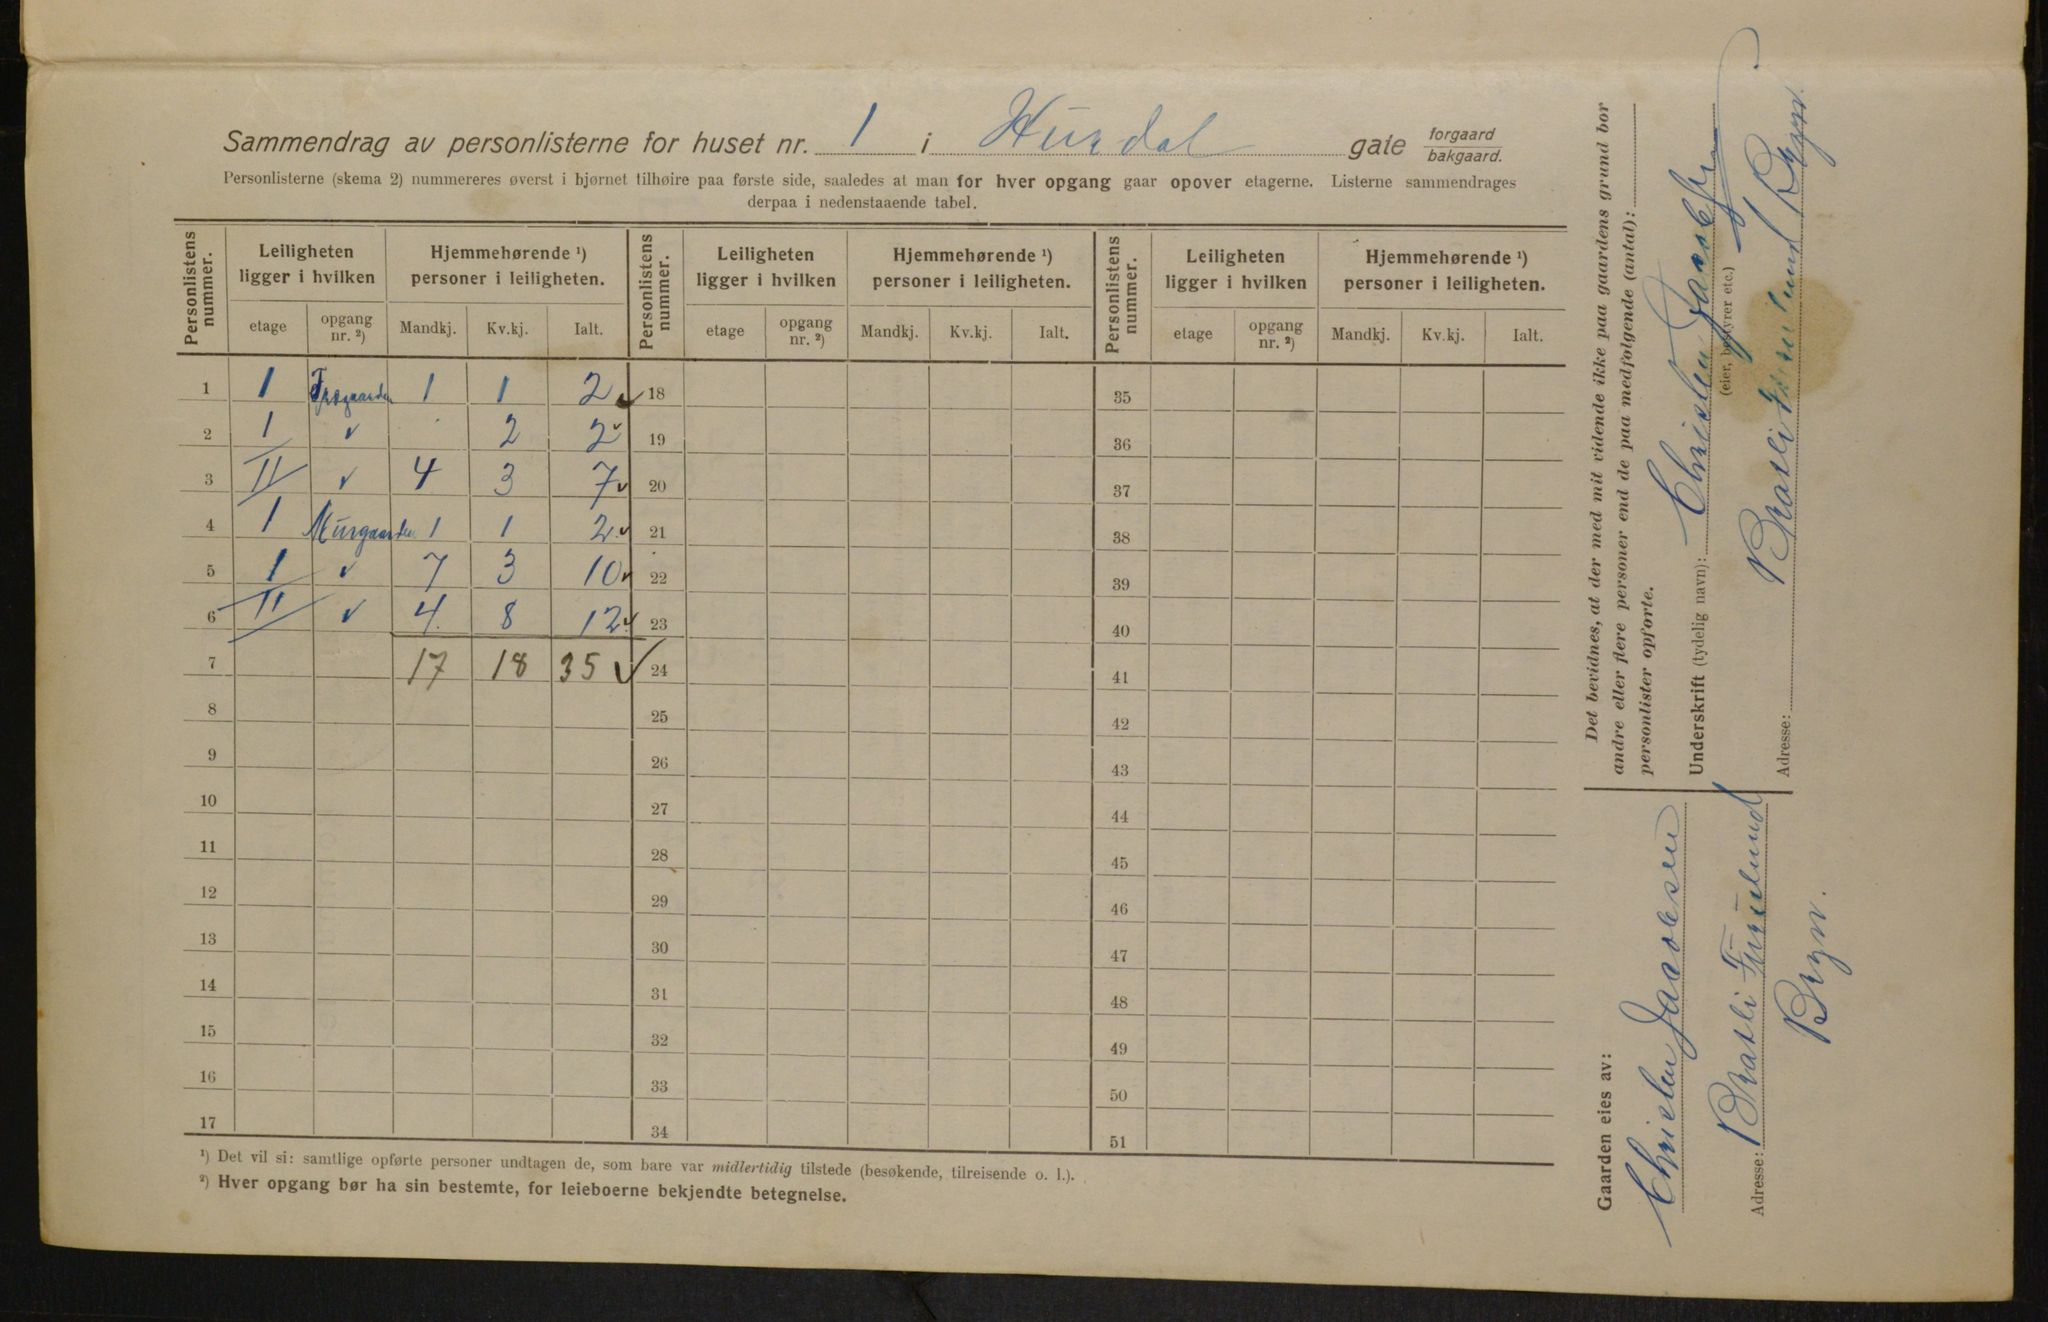 Sammendrag av personlisterne for huset nr. 1 i Hurdal gate forgaard bakgaard.
Personlisterne (skema 2) nummereres øverst i hjørnet tilhøire paa første side, saaledes at man for hver opgang gaar opover etagerne. Listerne sammendrages
derpaa i nedenstaaende tabel.
Personlistens nummer. Leiligheten ligger i hvilken Hjemmehørende ¹) personer i leiligheten. Personlistens nummer. Leiligheten ligger i hvilken Hjemmehørende ¹) personer i leiligheten. Personlistens nummer. Leiligheten ligger i hvilken Hjemmehørende ¹) personer i leiligheten.
etage opgang nr. ²) Mandkj. Kv.kj. Ialt. etage opgang nr. ²) Mandkj. Kv.kj. Ialt. etage opgang nr. ²) Mandkj. Kv.kj. Ialt.
1 1 Trægaarden 1 1 2 ✓ 18 35
2 1 ✓ 2 2 ✓ 19 36
3 II ✓ 4 3 7 ✓ 20 37
4 1 Murgaarden 1 1 2 ✓ 21 38
5 1 ✓ 7 3 10 ✓ 22 39
6 II ✓ 4 8 12 ✓ 23 40
7 17 18 35 ✓ 24 41
8 25 42
9 26 43
10 27 44
11 28 45
12 29 46
13 30 47
14 31 48
15 32 49
16 33 50
17 34 51
¹) Det vil si: samtlige opførte personer undtagen de, som bare var midlertidig tilstede (besøkende, tilreisende o. l.).
²) Hver opgang bør ha sin bestemte, for leieboerne bekjendte betegnelse.
Det bevidnes, at der med mit vidende ikke paa gaardens grund bor
andre eller flere personer end de paa medfølgende (antal):
personlister opførte.
Underskrift (tydelig navn): Christen Jacobsen
(eier, bestyrer etc.)
Adresse: Bratli Furulund Bryn.
Gaarden eies av:
Christen Jacobsen
Adresse: Bratli Furulund
Bryn.